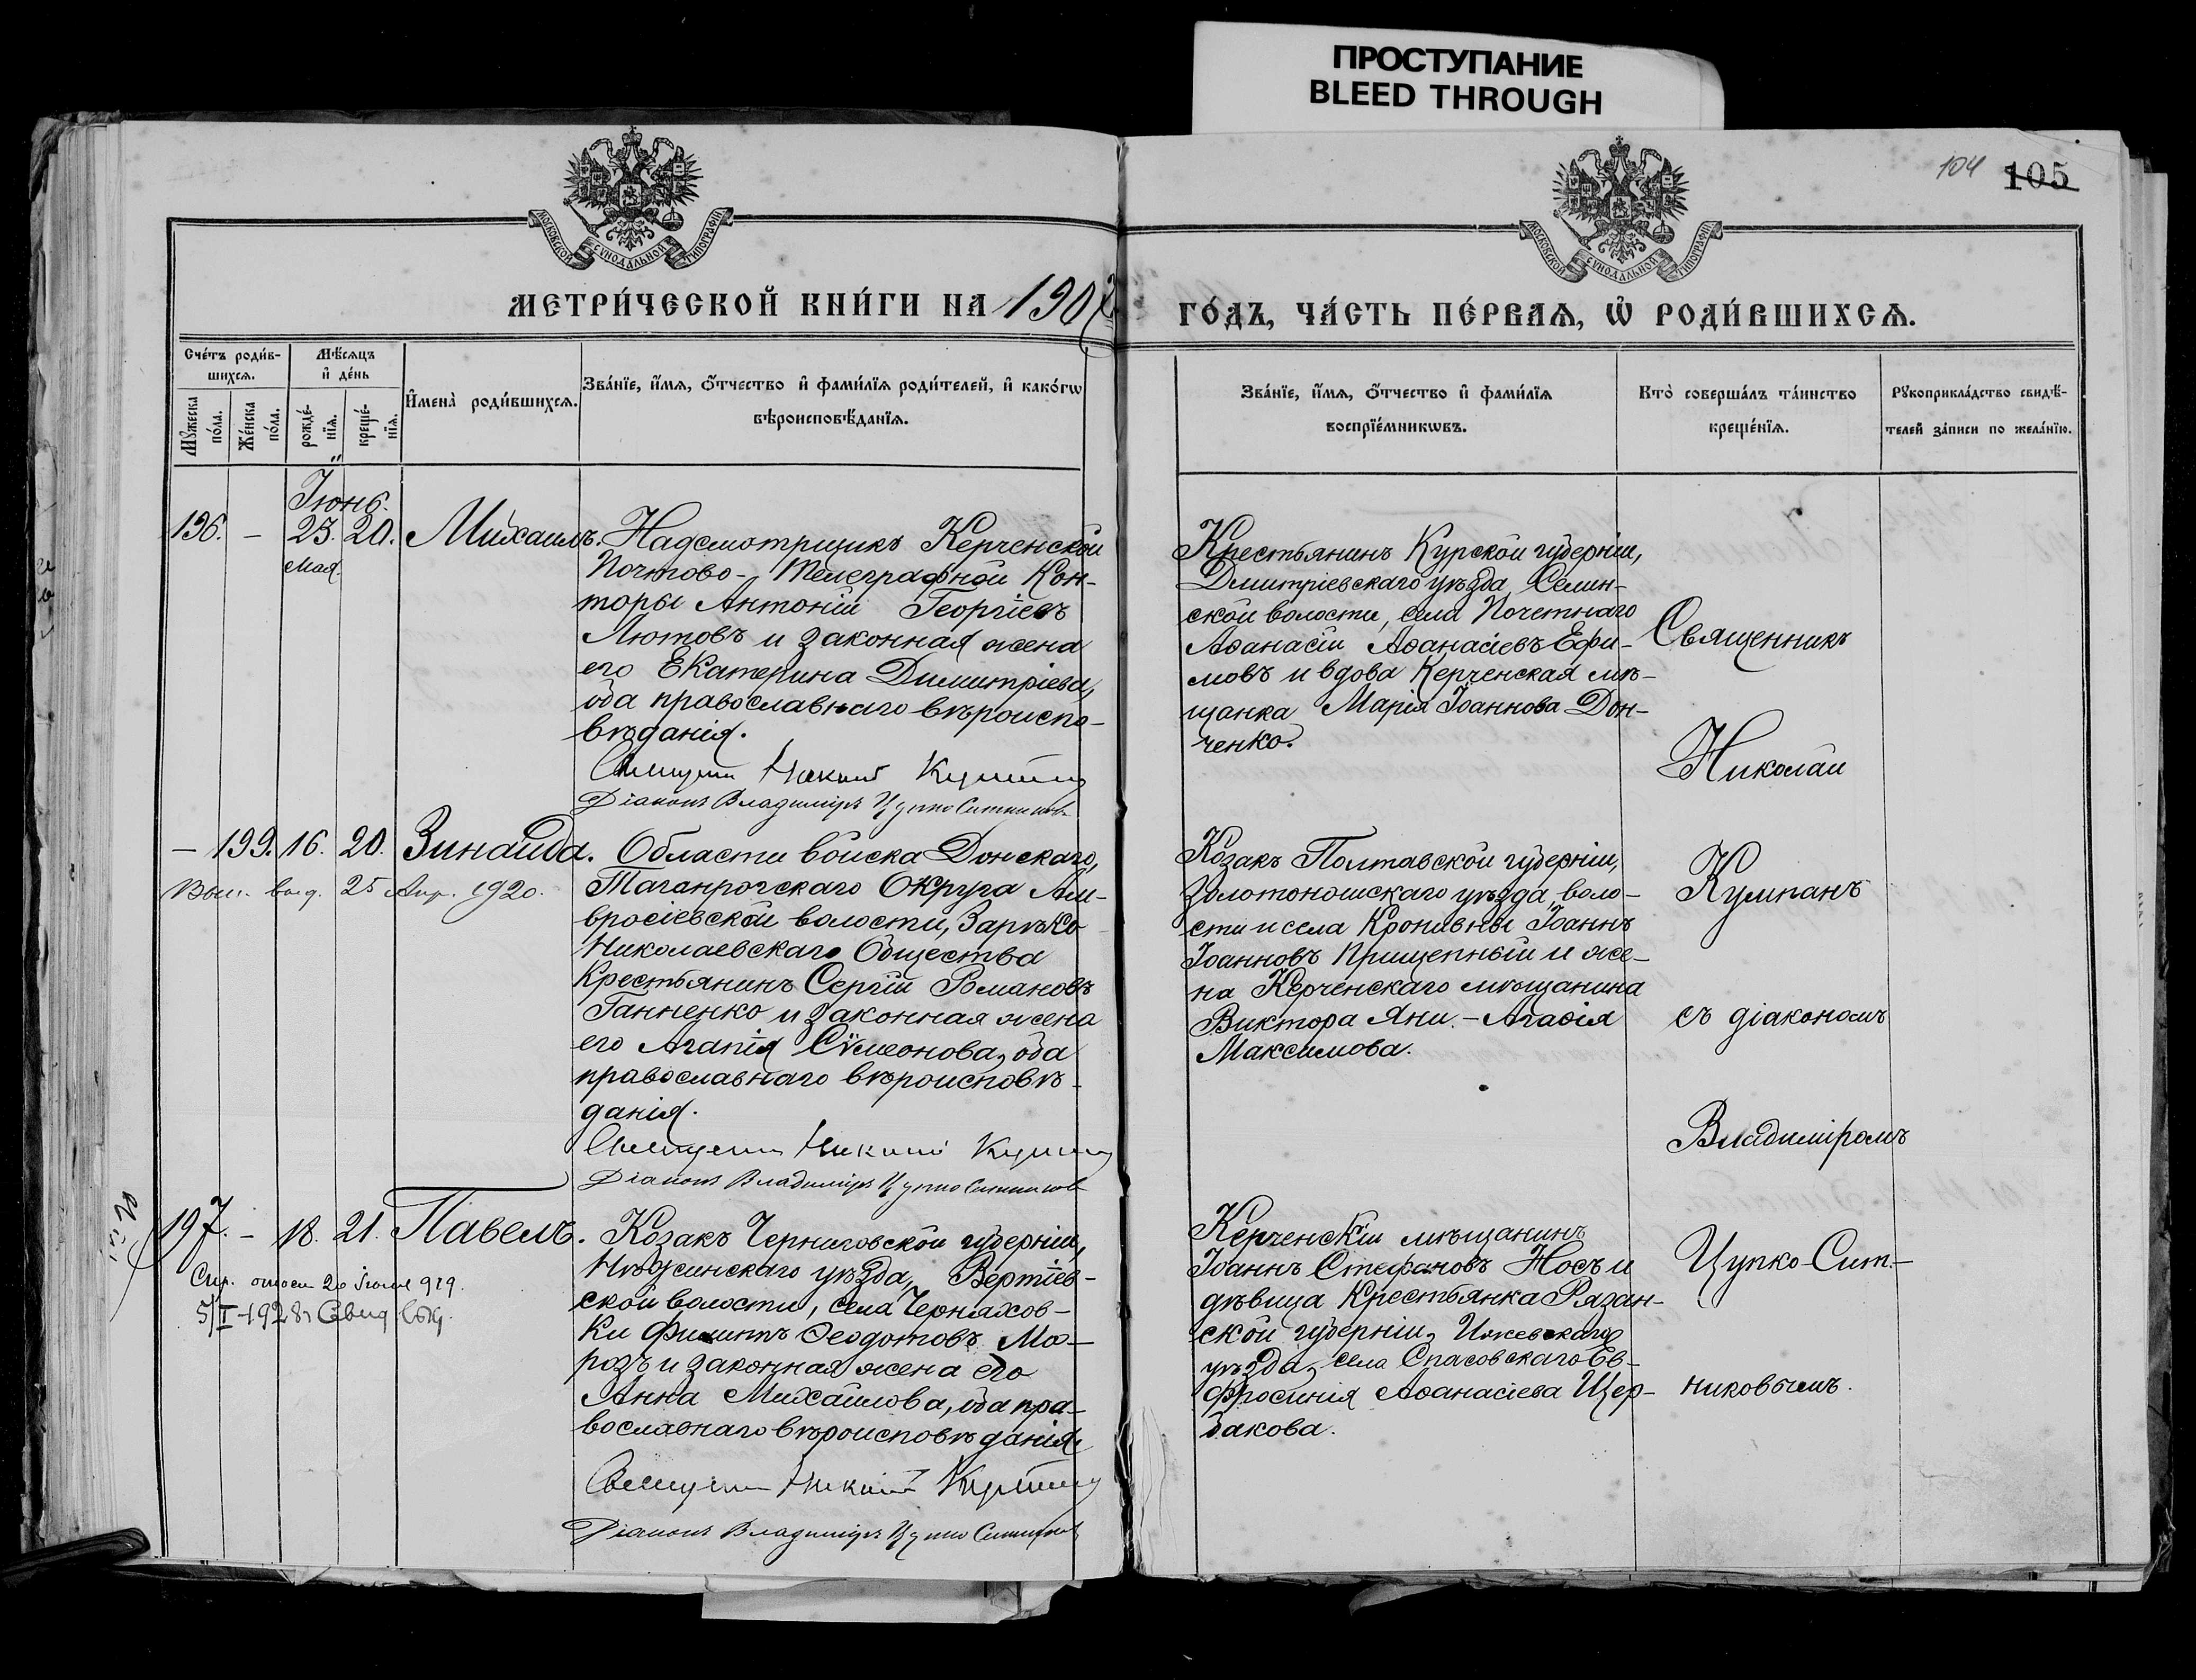 ПРОСТУПАНИЕ
BLEED THROUGH
104 105
МОСКОВСКОЙ СѴНОДАЛЬНОЙ ТИПОГРАФІИ
МОСКОВСКОЙ СѴНОДАЛЬНОЙ ТИПОГРАФІИ
МЕТРИ́ЧЕСКОЙ КНИ́ГИ НА 190
ГО́ДЪ, ЧА́СТЬ ПЕ́РВАѦ, Ѡ҆ РОДИ́ВШИХСѦ.
Сче́тъ роди́в-
шихсѧ.
Мꙋ́жеска по́ла.
Же́нска по́ла.
Мѣ́сѧцъ
и҆ де́нь
рожде́-
нїѧ.
креще́-
нїѧ.
И҆мена̀ роди́вшихсѧ.
Зва́нїе, и҆́мѧ, ѻ҆́тчество и҆ фами́лїѧ роди́телей, и҆ како́гѡ
вѣроисповѣ́данїѧ.
Зва́нїе, и҆́мѧ, ѻ҆́тчество и҆ фами́лїѧ
воспрїе́мникѡвъ.
Кто̀ соверша́лъ та́инство
креще́нїѧ.
Рꙋкоприкла́дство свидѣ́-
телей за́писи по жела́нїю.
Іюнь.
196. — 23. 20. Михаилъ.
Мая.
Надсмотрщикъ Керченской
Почтово-Телеграфной Кон-
торы Антоній Георгіевъ
Лютовъ и законная жена
его Екатерина Димитріева,
оба православнаго вѣроиспо-
вѣданія.
Діаконъ Владиміръ Цупко Ситниковъ
Крестьянинъ Курской губерніи,
Дмитріевскаго уѣзда, Селин-
ской волости, села Почетнаго
Аѳанасій Аѳанасіевъ Ефи-
мовъ и вдова Керченская мѣ-
щанка Марія Іоаннова Дон-
ченко.
Священникъ
Николай
— 199. 16. 20. Зинаида.
25 Апр. 1920.
Области войска Донскаго,
Таганрогскаго Округа Ам-
вросіевской волости, Зарѣко
Николаевскаго Общества
Крестьянинъ Сергій Романовъ
Ганненко и законная жена
его Агапія Сѵмеонова, оба
православнаго вѣроисповѣ-
данія.
Діаконъ Владиміръ Цупко Ситниковъ
Козакъ Полтавской губерніи,
Золотоношскаго уѣзда, воло-
сти и села Кропивны Іоаннъ
Іоанновъ Прищепный и же-
на Керченскаго мѣщанина
Виктора Яни - Агафія
Максимова.
Кумпанъ
съ діакономъ
Владиміромъ
197. — 18. 21. Павелъ.
5/I-1928
Козакъ Черниговской губерніи,
Нѣжинскаго уѣзда, Вертіев-
ской волости, села Черняхов-
ки Филиппъ Ѳеодотовъ Мо-
розъ и законная жена его
Анна Михайлова, оба пра-
вославнаго вѣроисповѣданія
Діаконъ Владиміръ Цупко Ситниковъ
Керченскій мѣщанинъ
Іоаннъ Стефановъ Носъ и
дѣвица Крестьянка Рязан-
ской губерніи,
уѣзда, села Спасовскаго Ев-
фросинія Аѳанасіева Щер-
бакова.
Цупко-Сит-
никовымъ.